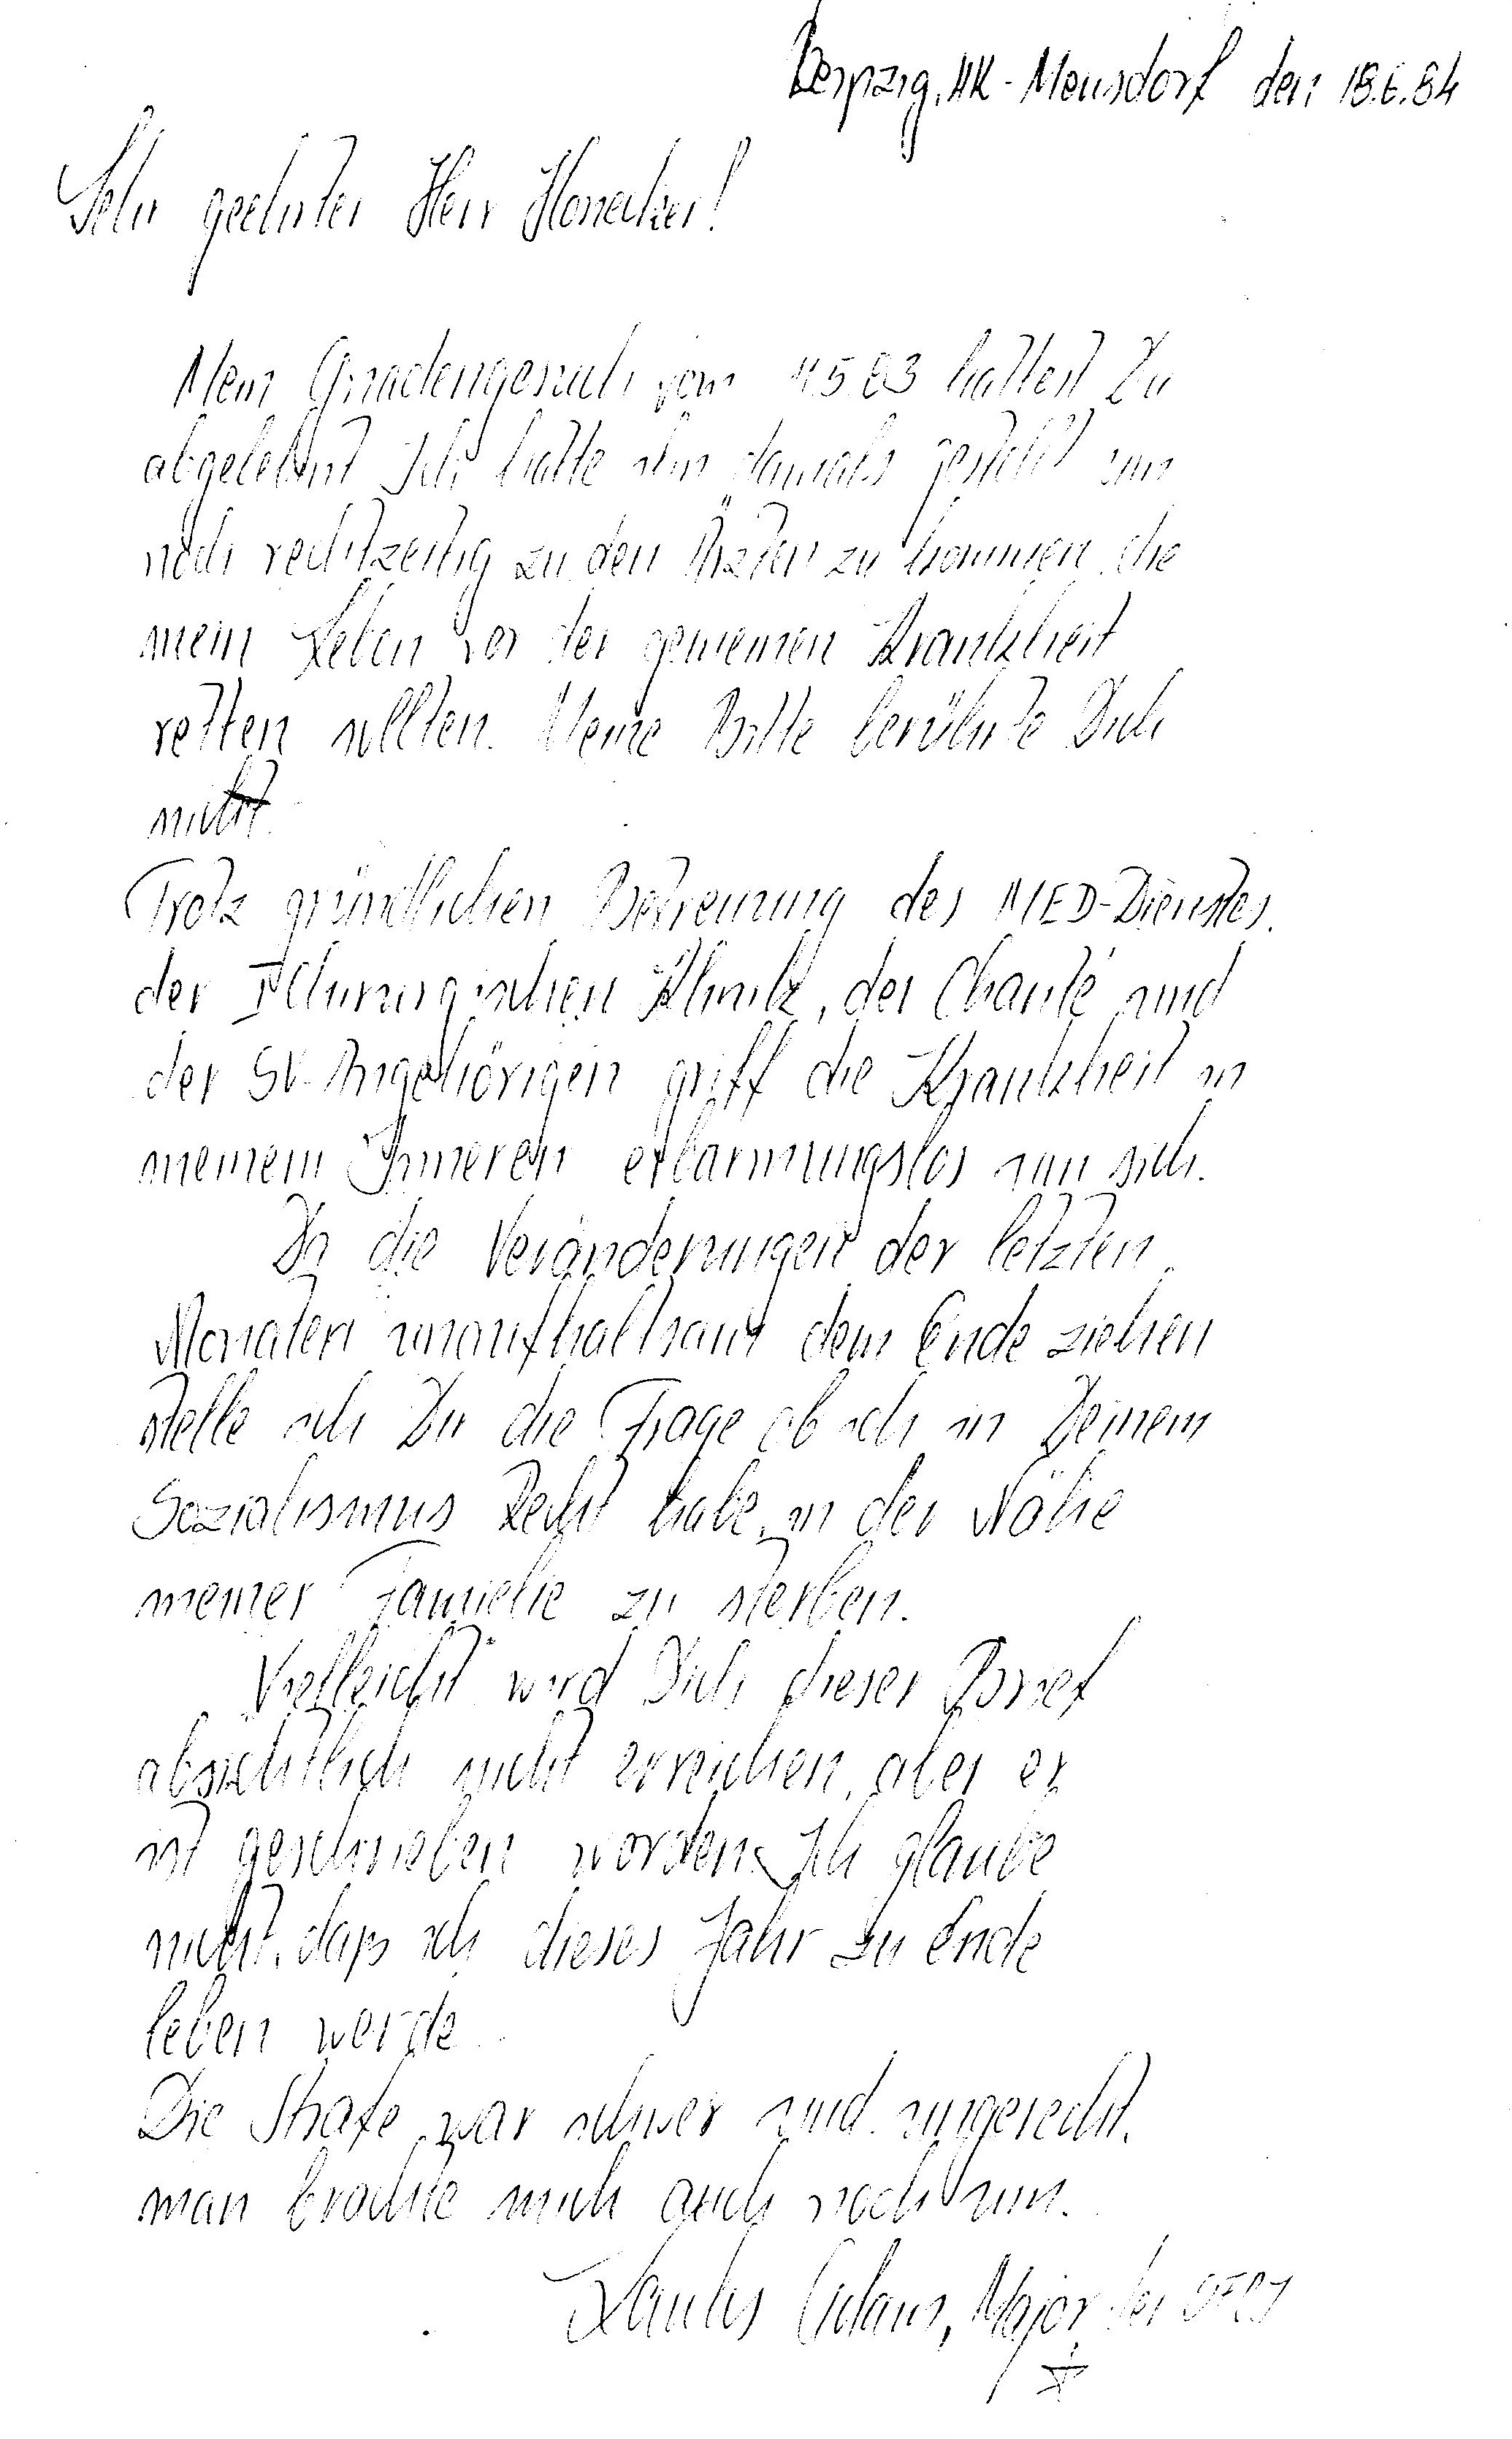 Leipzig, HK-Meusdorf den 18.6.84
Sehr geehrter Herr Honecker!
Mein Gnadengesuch vom 4.5.83 hattest Du
abgelehnt Ich hatte ihn damals gestellt um
noch rechtzeitig zu den Ärzten zu kommen, die
mein Leben vor der gemeinen Krankheit
retten sollten. Meine Bitte berührte Dich
nicht.
Trotz gründlichen Betreuung des MED-Dienstes,
der Chirurgischen Klinik, der Charité und
der SV-Angehörigen griff die Krankheit in
meinem Inneren erbarmungslos um sich.
Da die Veränderungen der letzten
Monaten unaufhaltsam dem Ende ziehen
stelle ich Dir die Frage ob ich in Deinem
Sozialismus Recht habe, in der Nähe
meiner Famielie zu sterben.
Vielleicht wird Dich dieser Brief
absichtlich nicht erreichen, aber er
ist geschrieben worden. Ich glaube
nicht, daß ich dieses Jahr zu Ende
leben werde.
Die Strafe war schwer und ungerecht,
man brachte mich auch noch um.
Major der